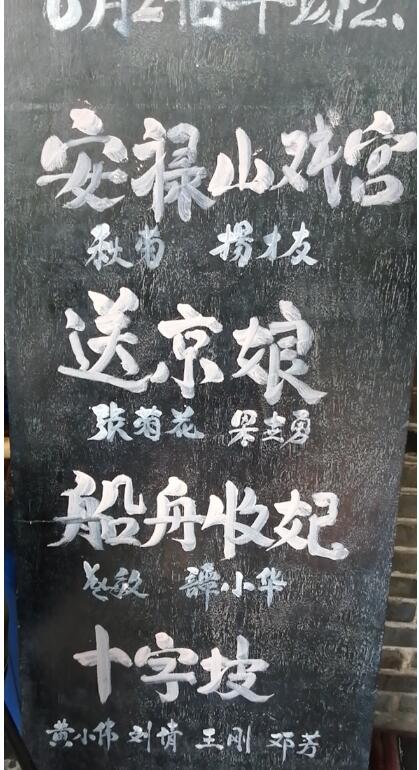 6月2日午场
安禄山戏宫
秋菊 杨才友
送京娘
张菊花 罗志勇
船舟收妃
敏 譚小华
十字坡
黄小伟 刘倩 王刚 邓芳